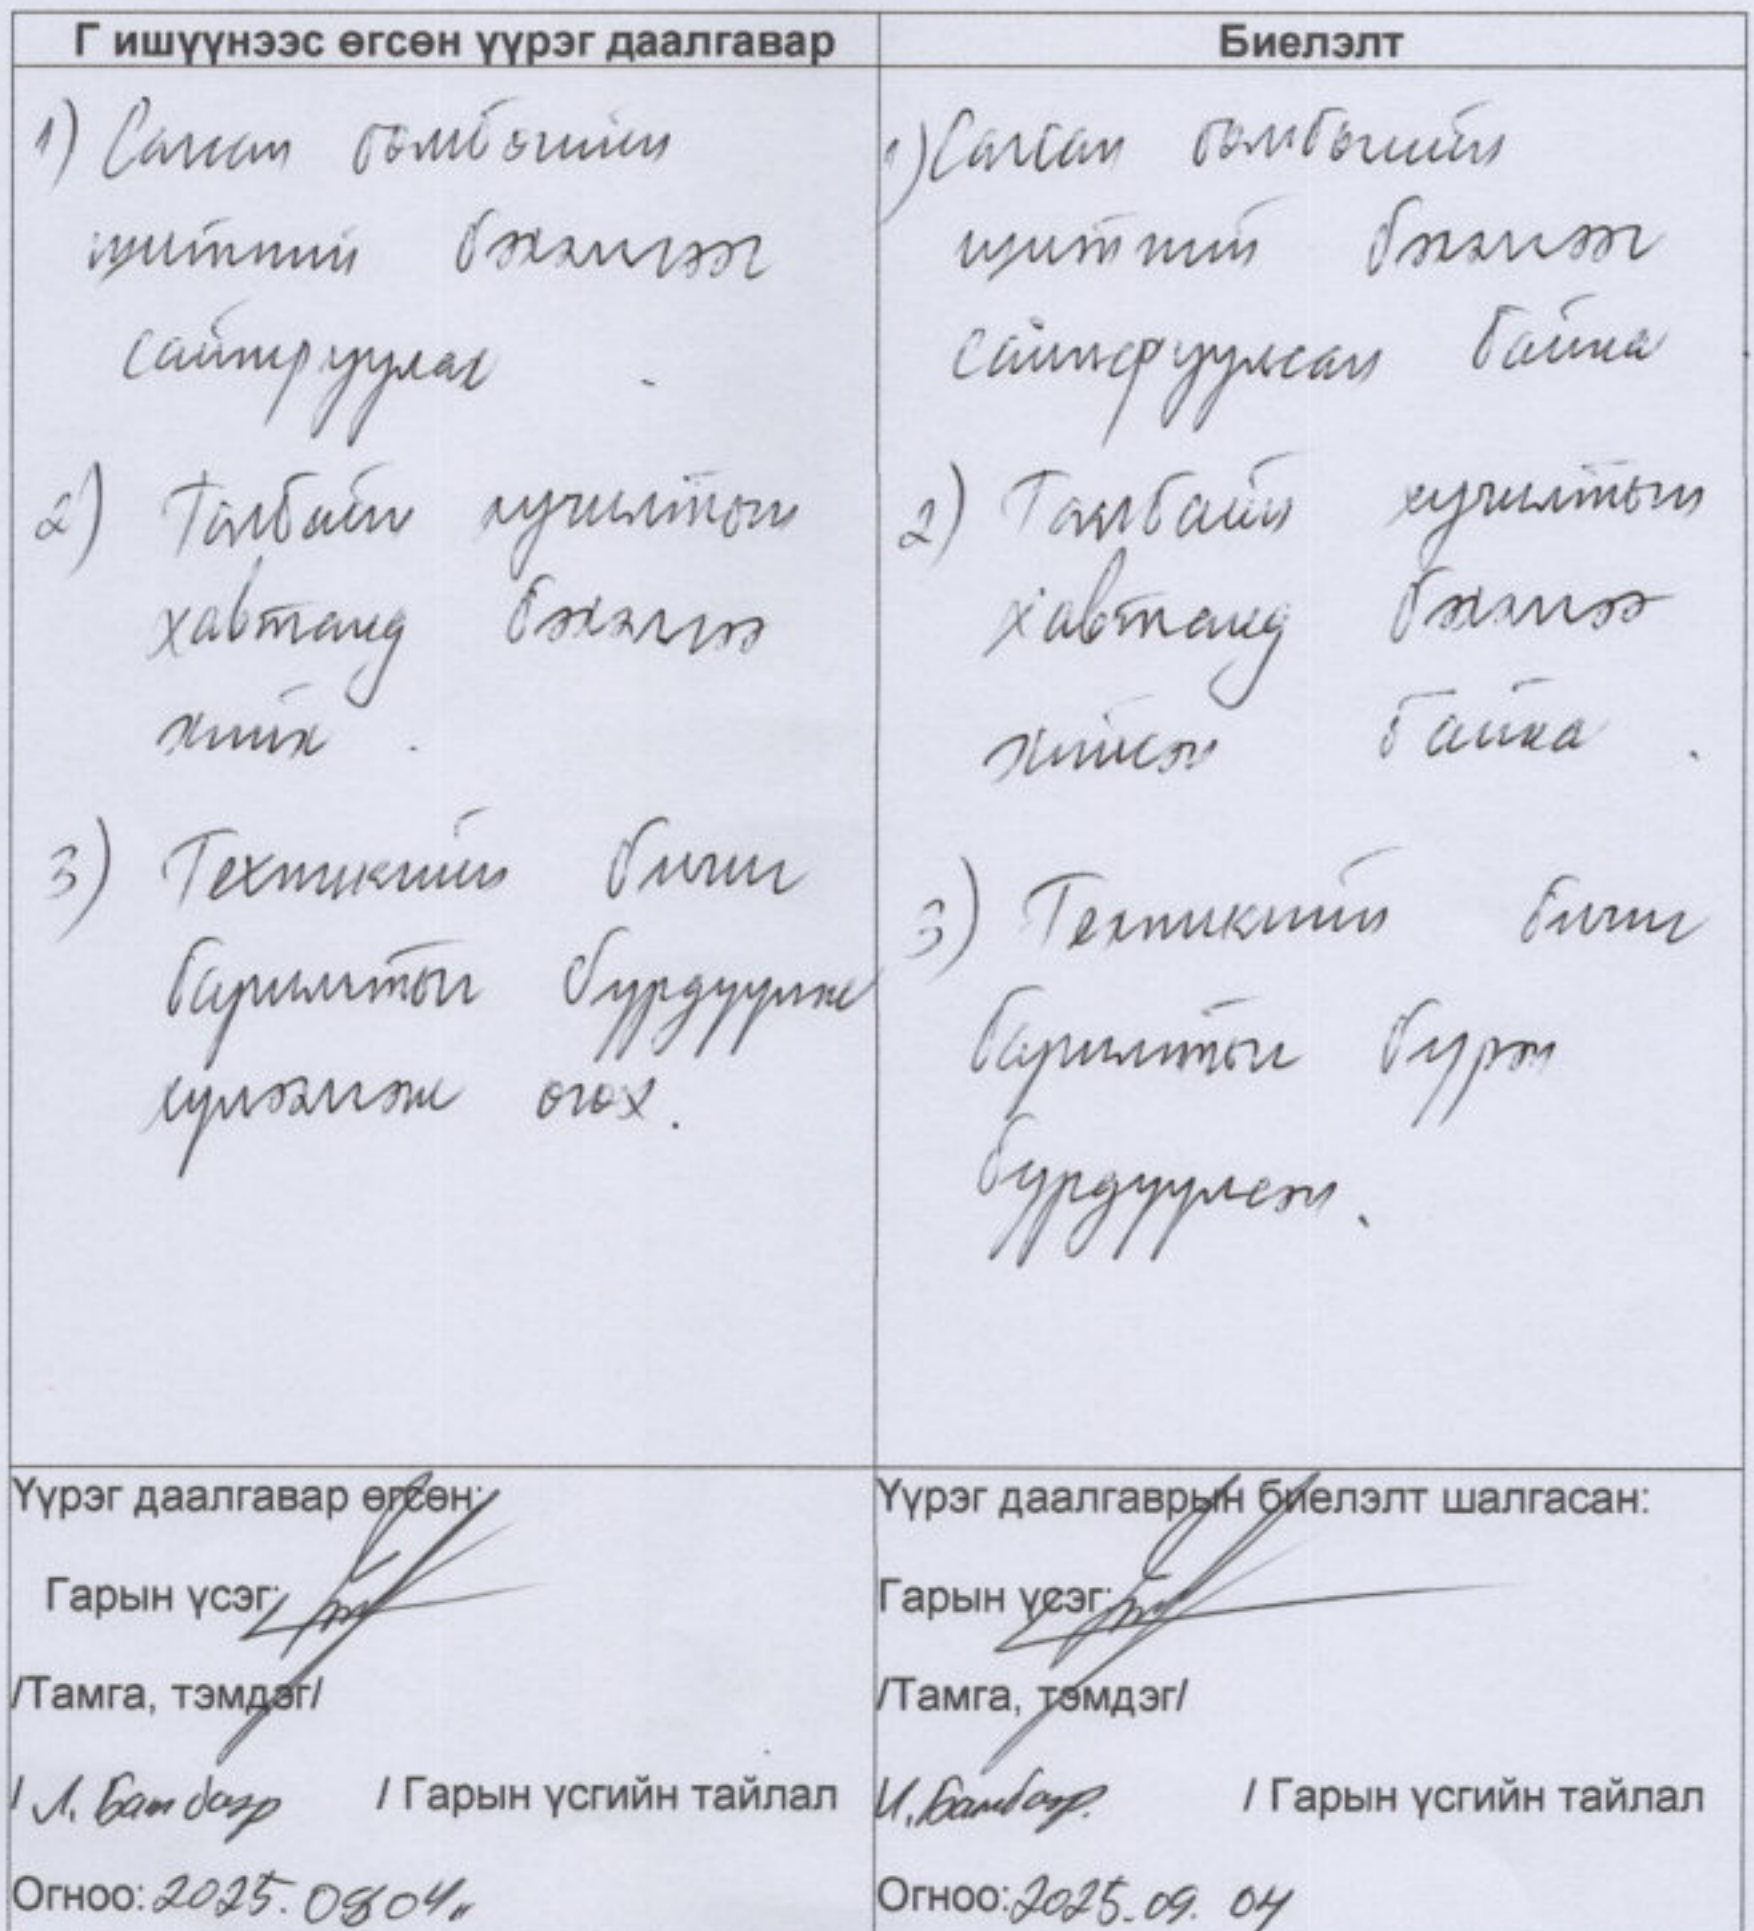 Г ишүүнээс өгсөн үүрэг даалгавар
1) Сагсан бөмбөгийн
щитний бэхэлгээг
сайжруулах
2) Талбайн хучилтын
хавтанд бэхэлгээ
хийх.
3) Техникийн бичиг
баримтыг бүрдүүлж
хүлээлгэж өгөх.
Биелэлт
1) Сагсан бөмбөгийн
щитний бэхэлгээг
сайжруулсан байна.
2) Талбайн хучилтын
хавтанд бэхэлгээ
хийсэн байна.
3) Техникийн бичиг
баримтыг бүрэн
бүрдүүлсэн.
Үүрэг даалгавар өгсөн:
Гарын үсэг:
/Тамга, тэмдэг/
/ Л. / Гарын үсгийн тайлал
Огноо: 2025. 08 04
Үүрэг даалгаврын биелэлт шалгасан:
Гарын үсэг:
/Тамга, тэмдэг/
/ Гарын үсгийн тайлал
Огноо: 2025. 09. 04